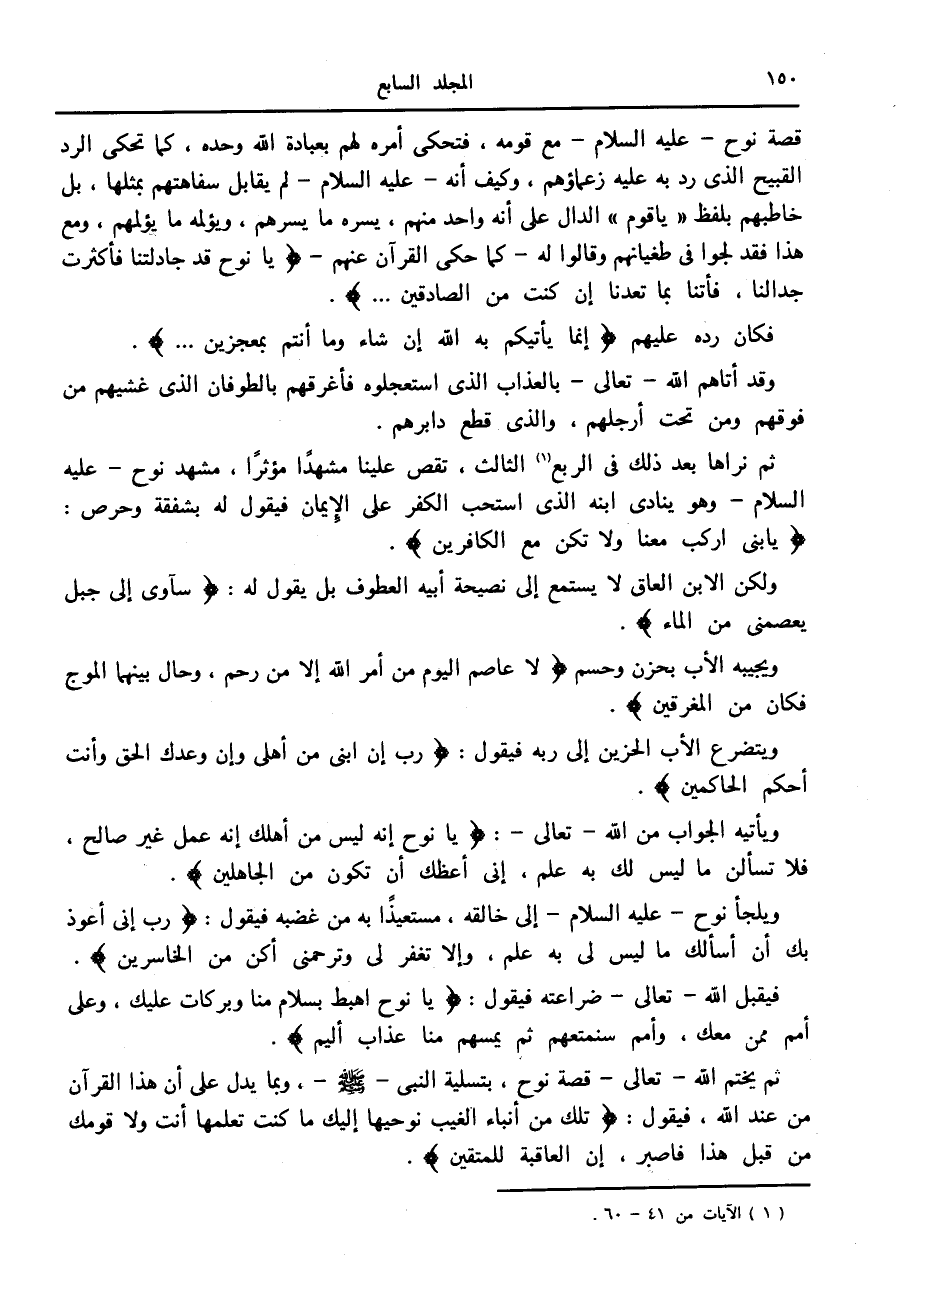 ١٥٠
المجلد السابع
قصة نوح – عليه السلام – مع قومه ، فتحكى أمره لهم بعبادة الله وحده ، كما تحكى الرد
القبيح الذى رد به عليه زعماؤهم ، وكيف أنه – عليه السلام – لم يقابل سفاهتهم بمثلها ، بل
خاطبهم بلفظ « ياقوم » الدال على أنه واحد منهم ، يسره ما يسرهم ، ويؤلمه ما يؤلمهم ، ومع
هذا فقد لجوا فى طغيانهم وقالوا له – كما حكى القرآن عنهم – ﴿ يا نوح قد جادلتنا فأكثرت
جدالنا ، فأتنا بما تعدنا إن كنت من الصادقين ... ﴾ .
فكان رده عليهم ﴿ إنما يأتيكم به الله إن شاء وما أنتم بمعجزين ... ﴾ .
وقد أتاهم الله – تعالى – بالعذاب الذى استعجلوه فأغرقهم بالطوفان الذى غشيهم من
فوقهم ومن تحت أرجلهم ، والذى قطع دابرهم .
ثم نراها بعد ذلك فى الربع(١) الثالث ، تقص علينا مشهدًا مؤثرًا ، مشهد نوح – عليه
السلام – وهو ينادى ابنه الذى استحب الكفر على الإيمان فيقول له بشفقة وحرص :
﴿ يابنى اركب معنا ولا تكن مع الكافرين ﴾ .
ولكن الابن العاق لا يستمع إلى نصيحة أبيه العطوف بل يقول له : ﴿ سآوى إلى جبل
يعصمنى من الماء ﴾ .
ويجيبه الأب بحزن وحسم ﴿ لا عاصم اليوم من أمر الله إلا من رحم ، وحال بينهما الموج
فكان من المغرقين ﴾ .
ويتضرع الأب الحزين إلى ربه فيقول : ﴿ رب إن ابنى من أهلى وإن وعدك الحق وأنت
أحكم الحاكمين ﴾ .
ويأتيه الجواب من الله – تعالى – : ﴿ يا نوح إنه ليس من أهلك إنه عمل غير صالح ،
فلا تسألن ما ليس لك به علم ، إنى أعظك أن تكون من الجاهلين ﴾ .
ويلجأ نوح – عليه السلام – إلى خالقه ، مستعيذًا به من غضبه فيقول : ﴿ رب إنى أعوذ
بك أن أسألك ما ليس لى به علم ، وإلا تغفر لى وترحمنى أكن من الخاسرين ﴾ .
فيقبل الله – تعالى – ضراعته فيقول : ﴿ يا نوح اهبط بسلام منا وبركات عليك ، وعلى
أمم ممن معك ، وأمم سنمتعهم ثم يمسهم منا عذاب أليم ﴾ .
ثم يختم الله – تعالى – قصة نوح ، بتسلية النبى – ﷺ – ، وبما يدل على أن هذا القرآن
من عند الله ، فيقول : ﴿ تلك من أنباء الغيب نوحيها إليك ما كنت تعلمها أنت ولا قومك
من قبل هذا فاصبر ، إن العاقبة للمتقين ﴾ .
( ١ ) الآيات من ٤١ – ٦٠ .